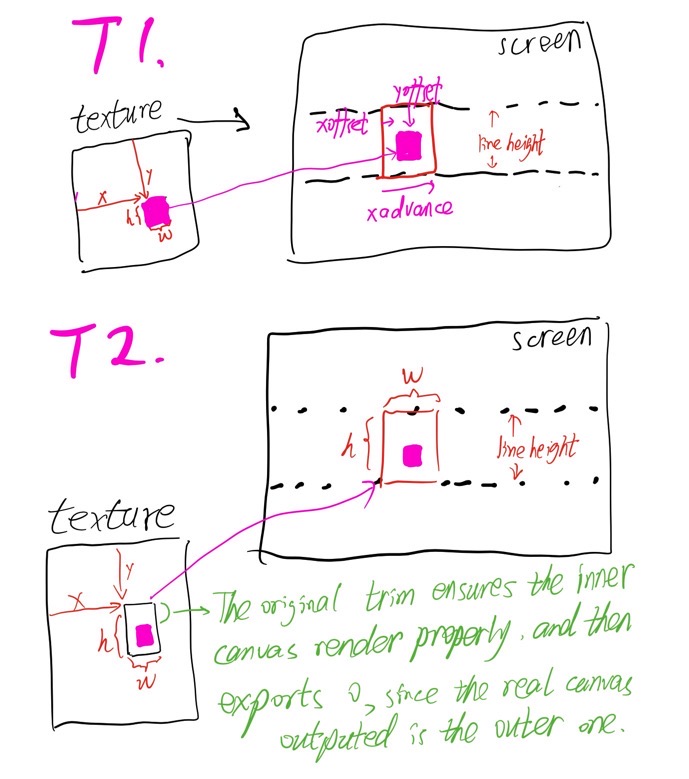 T1.
screen
texture
yoffset
xoffset
line height
x
y
h
w
xadvance
T2.
screen
w
h
line height
texture
x
y
h
w
The original trim ensures the inner
canvas render properly, and then
exports 0, since the real canvas
outputed is the outer one.